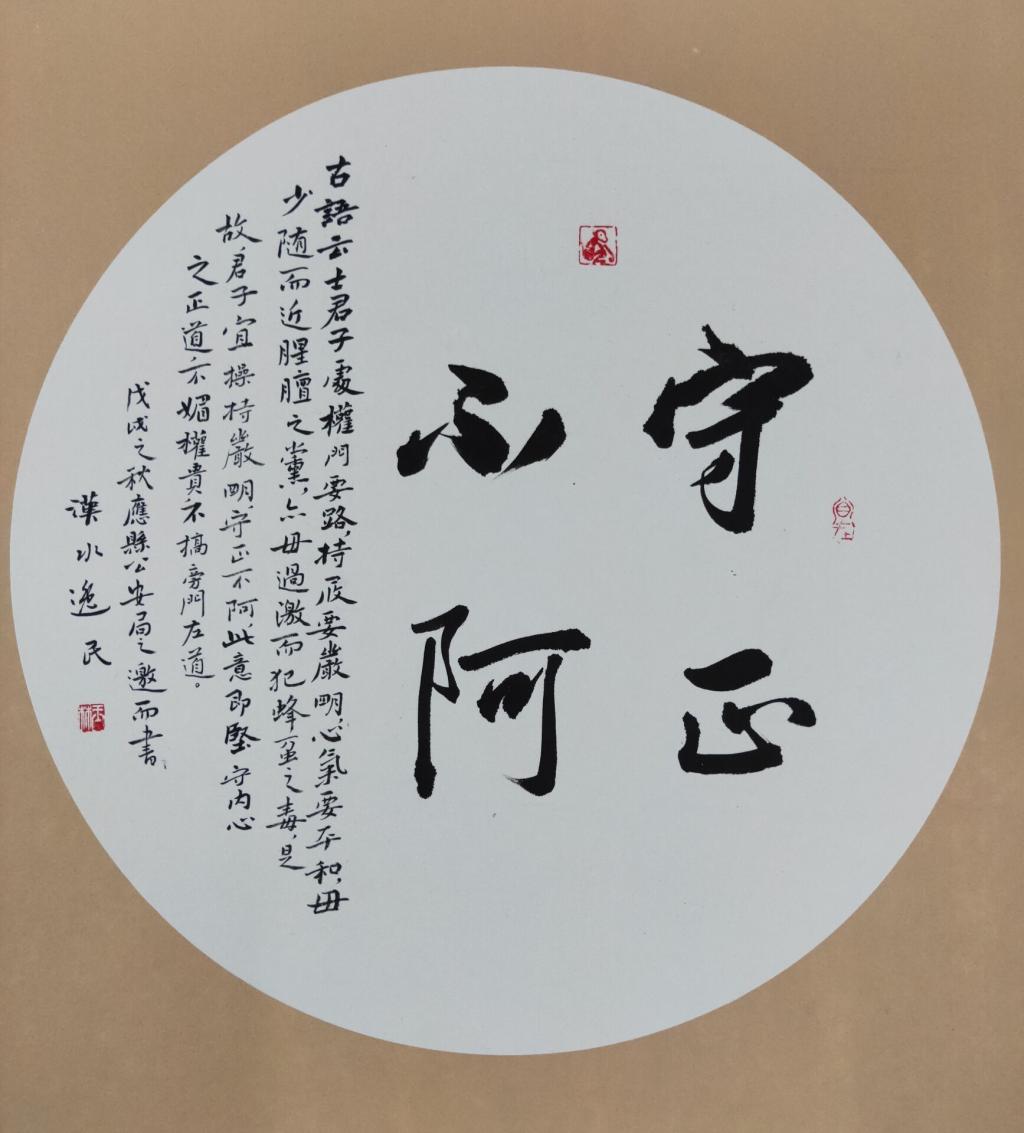 守正
不阿
古語云士君子處權門要路，持身要嚴明，心氣要平和，毋
少随而近腥膻之黨，亦毋過激而犯蜂虿之毒，是
故，君子宜操持嚴明，守正不阿，此意即堅守内心
之正道，不媚權貴，不搞旁門左道。
戊戌之秋應縣公安局之邀而書，
漢水逸民
自在